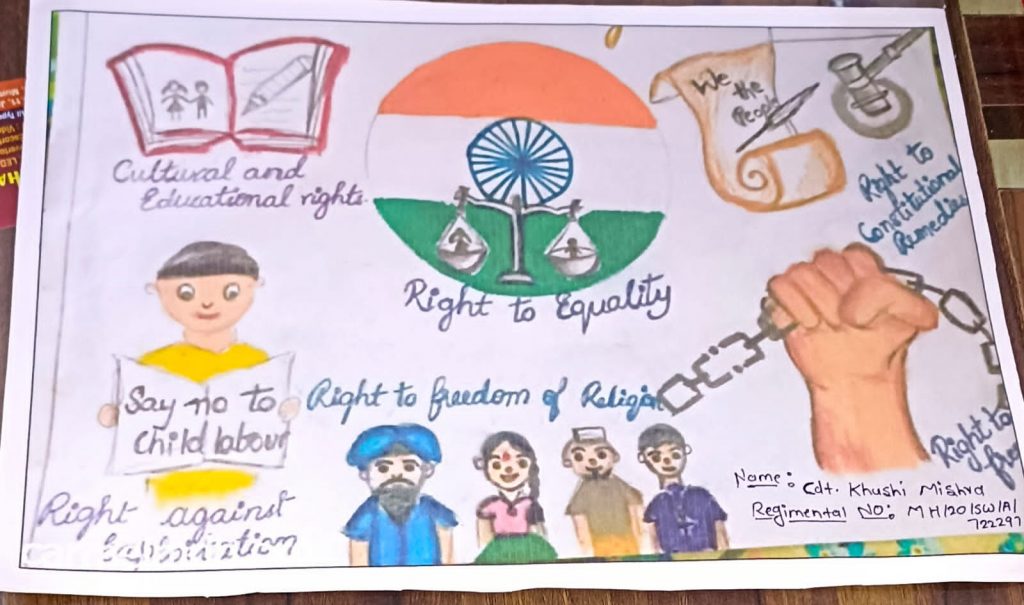 Cultural and
Educational rights.
We
the
People
Right to
Constitutional
Remedies
Right to Equality
Say no to
child labour
Right to freedom of Religion
Right against
Right to
Name: Cdt. Khushi Mishra
Regimental NO: MH/20/SW/A/
722297